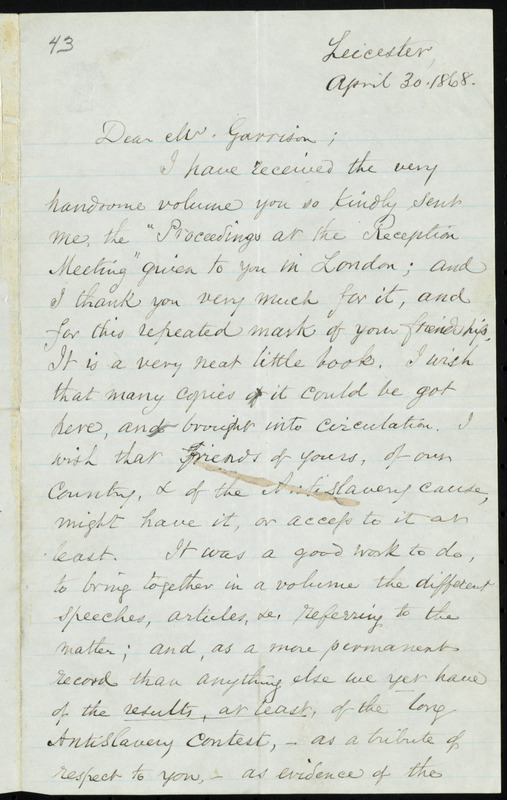 43
Leicester,
April 30. 1868.
Dear Mr. Garrison;
I have received the very
handsome volume you so kindly sent
me, the "Proceedings at the Reception
Meeting" given to you in London; and
I thank you very much for it, and
for this repeated mark of your friendship.
It is a very neat little book. I wish
that many copies of it could be got
here, and brought into circulation. I
wish that friends of yours, of our
Country, & of the Anti Slavery cause,
might have it, or access to it at
least. It was a good work to do,
to bring together in a volume the different
speeches, articles, &c. referring to the
matter; and, as a more permanent
record than anything else we yet have
of the results, at least, of the long
AntiSlavery Contest, – as a tribute of
respect to you, – as evidence of the